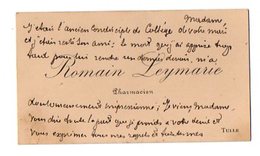 Madame
J'étais l'ancien condisciple de Collège de votre mari
et j'étais resté son ami ; la mort que j'ai apprise trop
tard pour lui rendre ces derniers devoirs, m'a
Romain Leymarie
Pharmacien
douloureusement impressionné ; Madame,
vous dire toute la part que je prends à votre deuil et
vous exprimer tous mes regrets et
Tulle